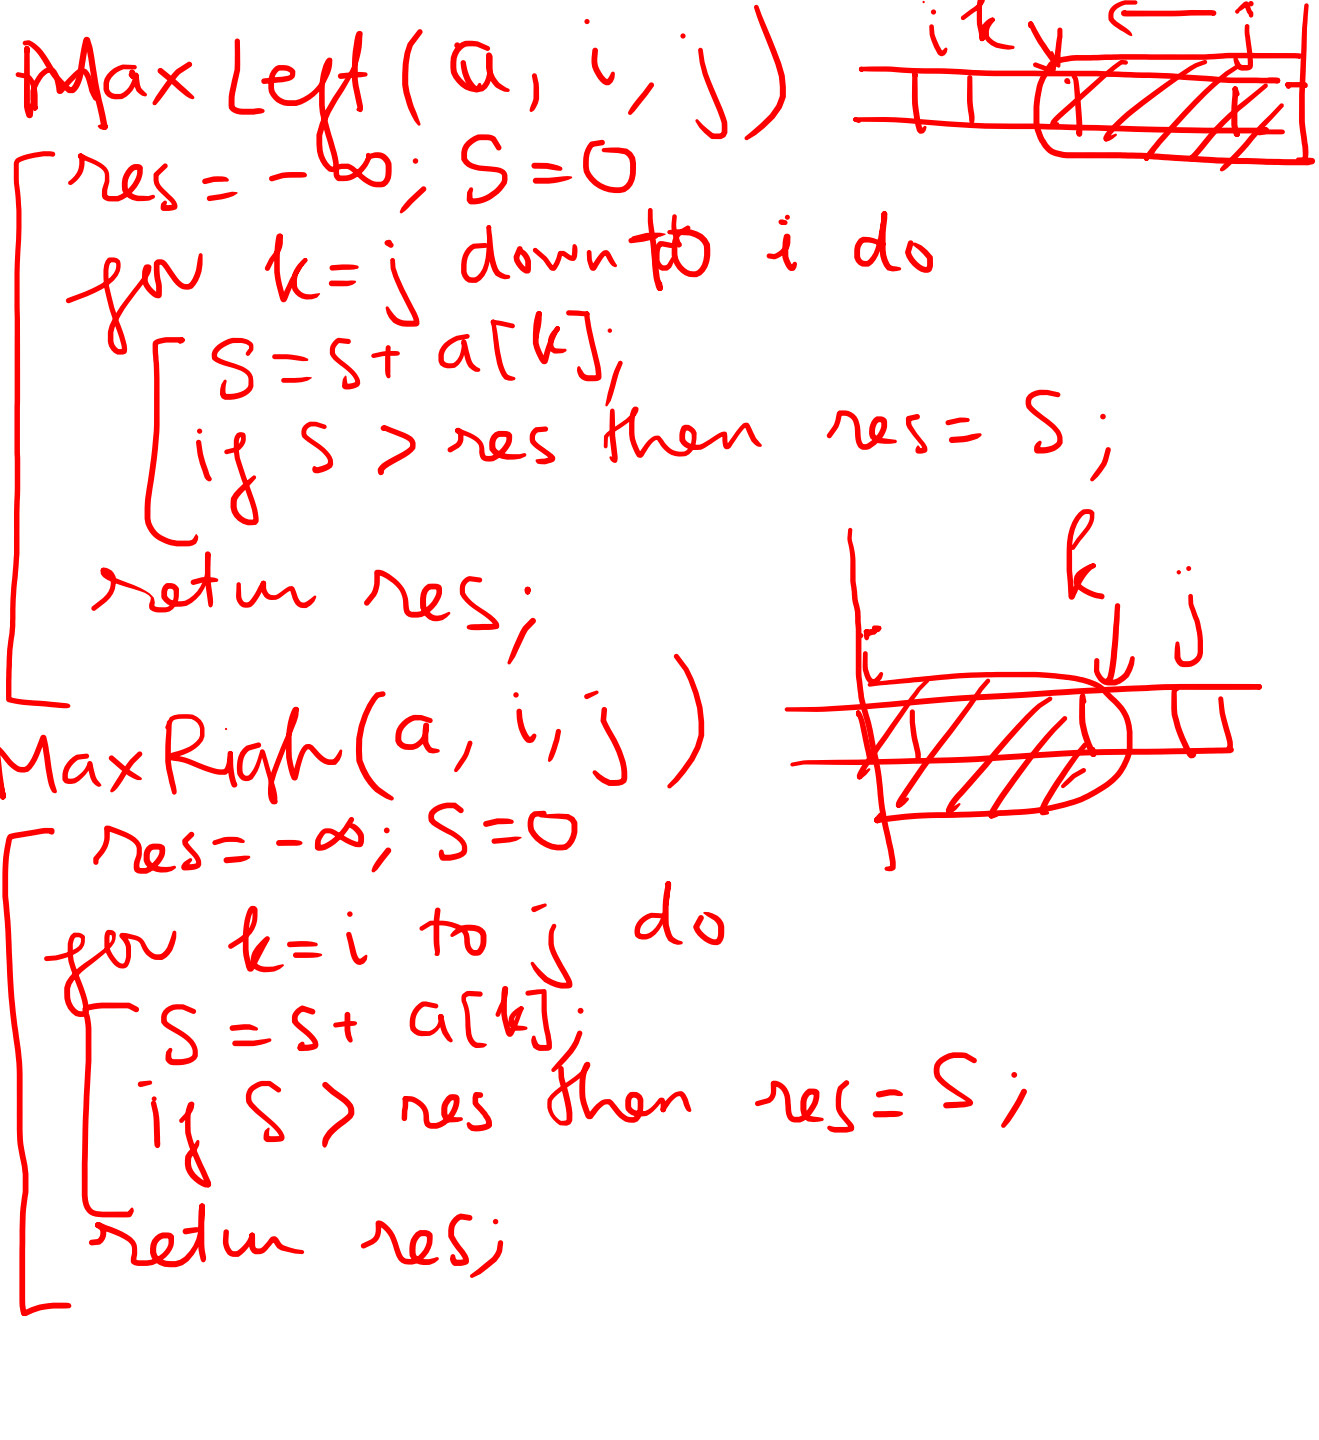 MaxLeft(a, i, j)
i k j
res = -∞; S = 0
for k = j downto i do
S = S + a[k];
if S > res then res = S;
return res;
k
i j
MaxRigh(a, i, j)
res = -∞; S = 0
for k = i to j do
S = S + a[k];
if S > res then res = S;
retun res;